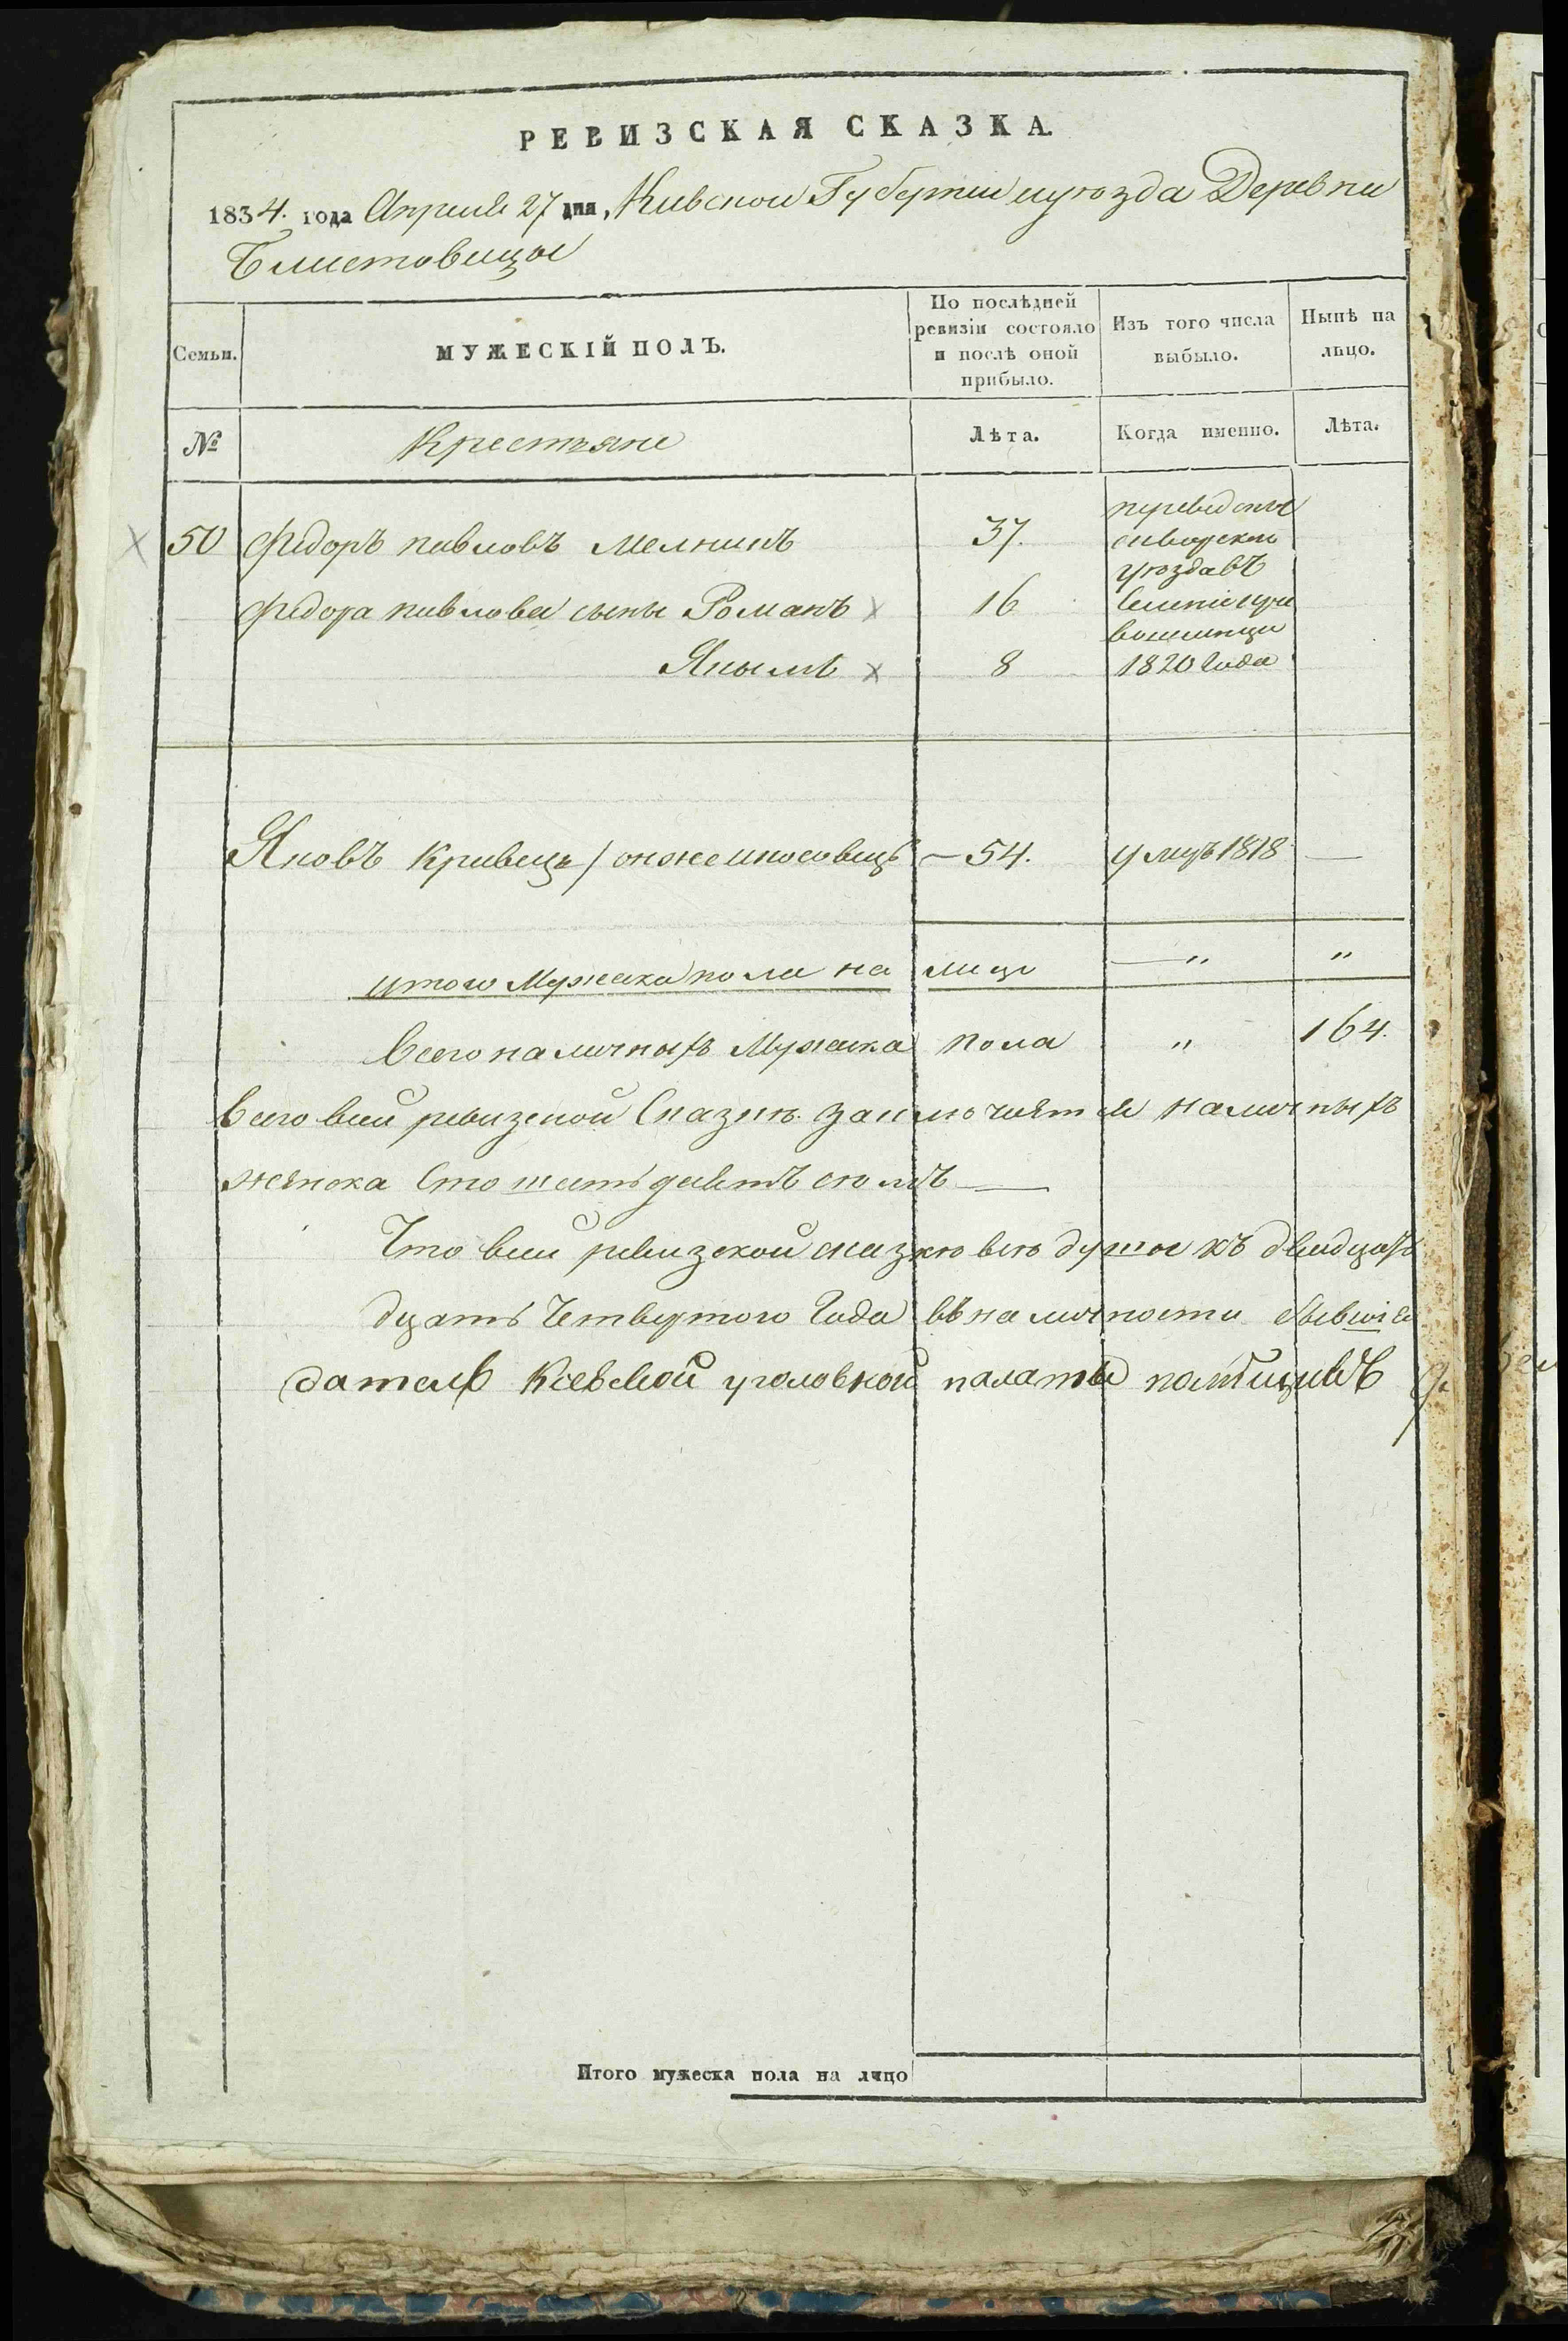 РЕВИЗСКАЯ СКАЗКА.
1834. года Апреля 27 дня, Киевской Губернии иуюзда Деревни
Блистовицы
Семьи.
МУЖЕСКІЙ ПОЛЪ.
По послѣдней ревизіи состояло и послѣ оной прибыло.
Изъ того числа выбыло.
Нынѣ на лицо.
№ Крестъяне Лѣта. Когда именно. Лѣта.
50 Федоръ павловъ Мелникъ 37. переведены
уюздавъ
Федора павлова сыны Романъ 16 Селение
Якымъ 8 1820 Года
Яковъ Кривецъ / онже 54. умеръ 1818 —
итого Мужеска пола на лицо — " "
Всего наличныхъ Мужеска пола " 164.
Всего всей ревизской Сказки заключается наличныхъ
женска Сто шестьдесятъ
Что всей ревизской сказкю всю душы къ
дцать Четвертого Года въ наличности
дателъ Киевской уголовной палаты
Итого мужеска пола на лицо